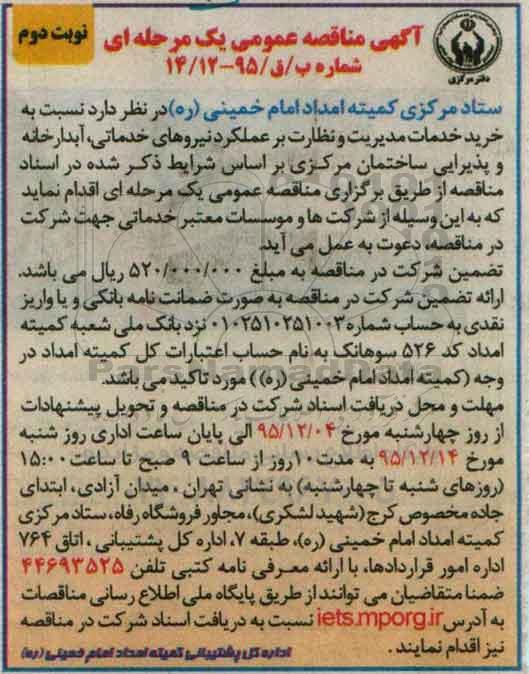 نوبت دوم
آگهی مناقصه عمومی یک مرحله ای
شماره ب/ق/۹۵-۱۴/۱۲
دفتر مرکزی
ستاد مرکزی کمیته امداد امام خمینی (ره) در نظر دارد نسبت به
خرید خدمات مدیریت و نظارت بر عملکرد نیروهای خدماتی، آبدارخانه
و پذیرایی ساختمان مرکزی بر اساس شرایط ذکر شده در اسناد
مناقصه از طریق برگزاری مناقصه عمومی یک مرحله ای اقدام نماید
که به این وسیله از شرکت ها و موسسات معتبر خدماتی جهت شرکت
در مناقصه، دعوت به عمل می آید.
تضمین شرکت در مناقصه به مبلغ ۵۲۰/۰۰۰/۰۰۰ ریال می باشد.
ارائه تضمین شرکت در مناقصه به صورت ضمانت نامه بانکی و یا واریز
نقدی به حساب شماره ۰۱۰۲۵۱۰۲۵۱۰۰۳ نزد بانک ملی شعبه کمیته
امداد کد ۵۲۶ سوهانک به نام حساب اعتبارات کل کمیته امداد در
وجه (کمیته امداد امام خمینی (ره)) مورد تاکید می باشد.
مهلت و محل دریافت اسناد شرکت در مناقصه و تحویل پیشنهادات
از روز چهارشنبه مورخ ۹۵/۱۲/۰۴ الی پایان ساعت اداری روز شنبه
مورخ ۹۵/۱۲/۱۴ به مدت ۱۰ روز از ساعت ۹ صبح تا ساعت ۱۵:۰۰
(روزهای شنبه تا چهارشنبه) به نشانی تهران، میدان آزادی، ابتدای
جاده مخصوص کرج (شهید لشکری)، مجاور فروشگاه رفاه، ستاد مرکزی
کمیته امداد امام خمینی (ره)، طبقه ۷، اداره کل پشتیبانی، اتاق ۷۶۴
اداره امور قراردادها، با ارائه معرفی نامه کتبی تلفن ۴۴۶۹۳۵۲۵
ضمنا متقاضیان می توانند از طریق پایگاه ملی اطلاع رسانی مناقصات
به آدرس iets.mporg.ir نسبت به دریافت اسناد شرکت در مناقصه
نیز اقدام نمایند.
اداره کل پشتیبانی کمیته امداد امام خمینی (ره)
ParsNamadData